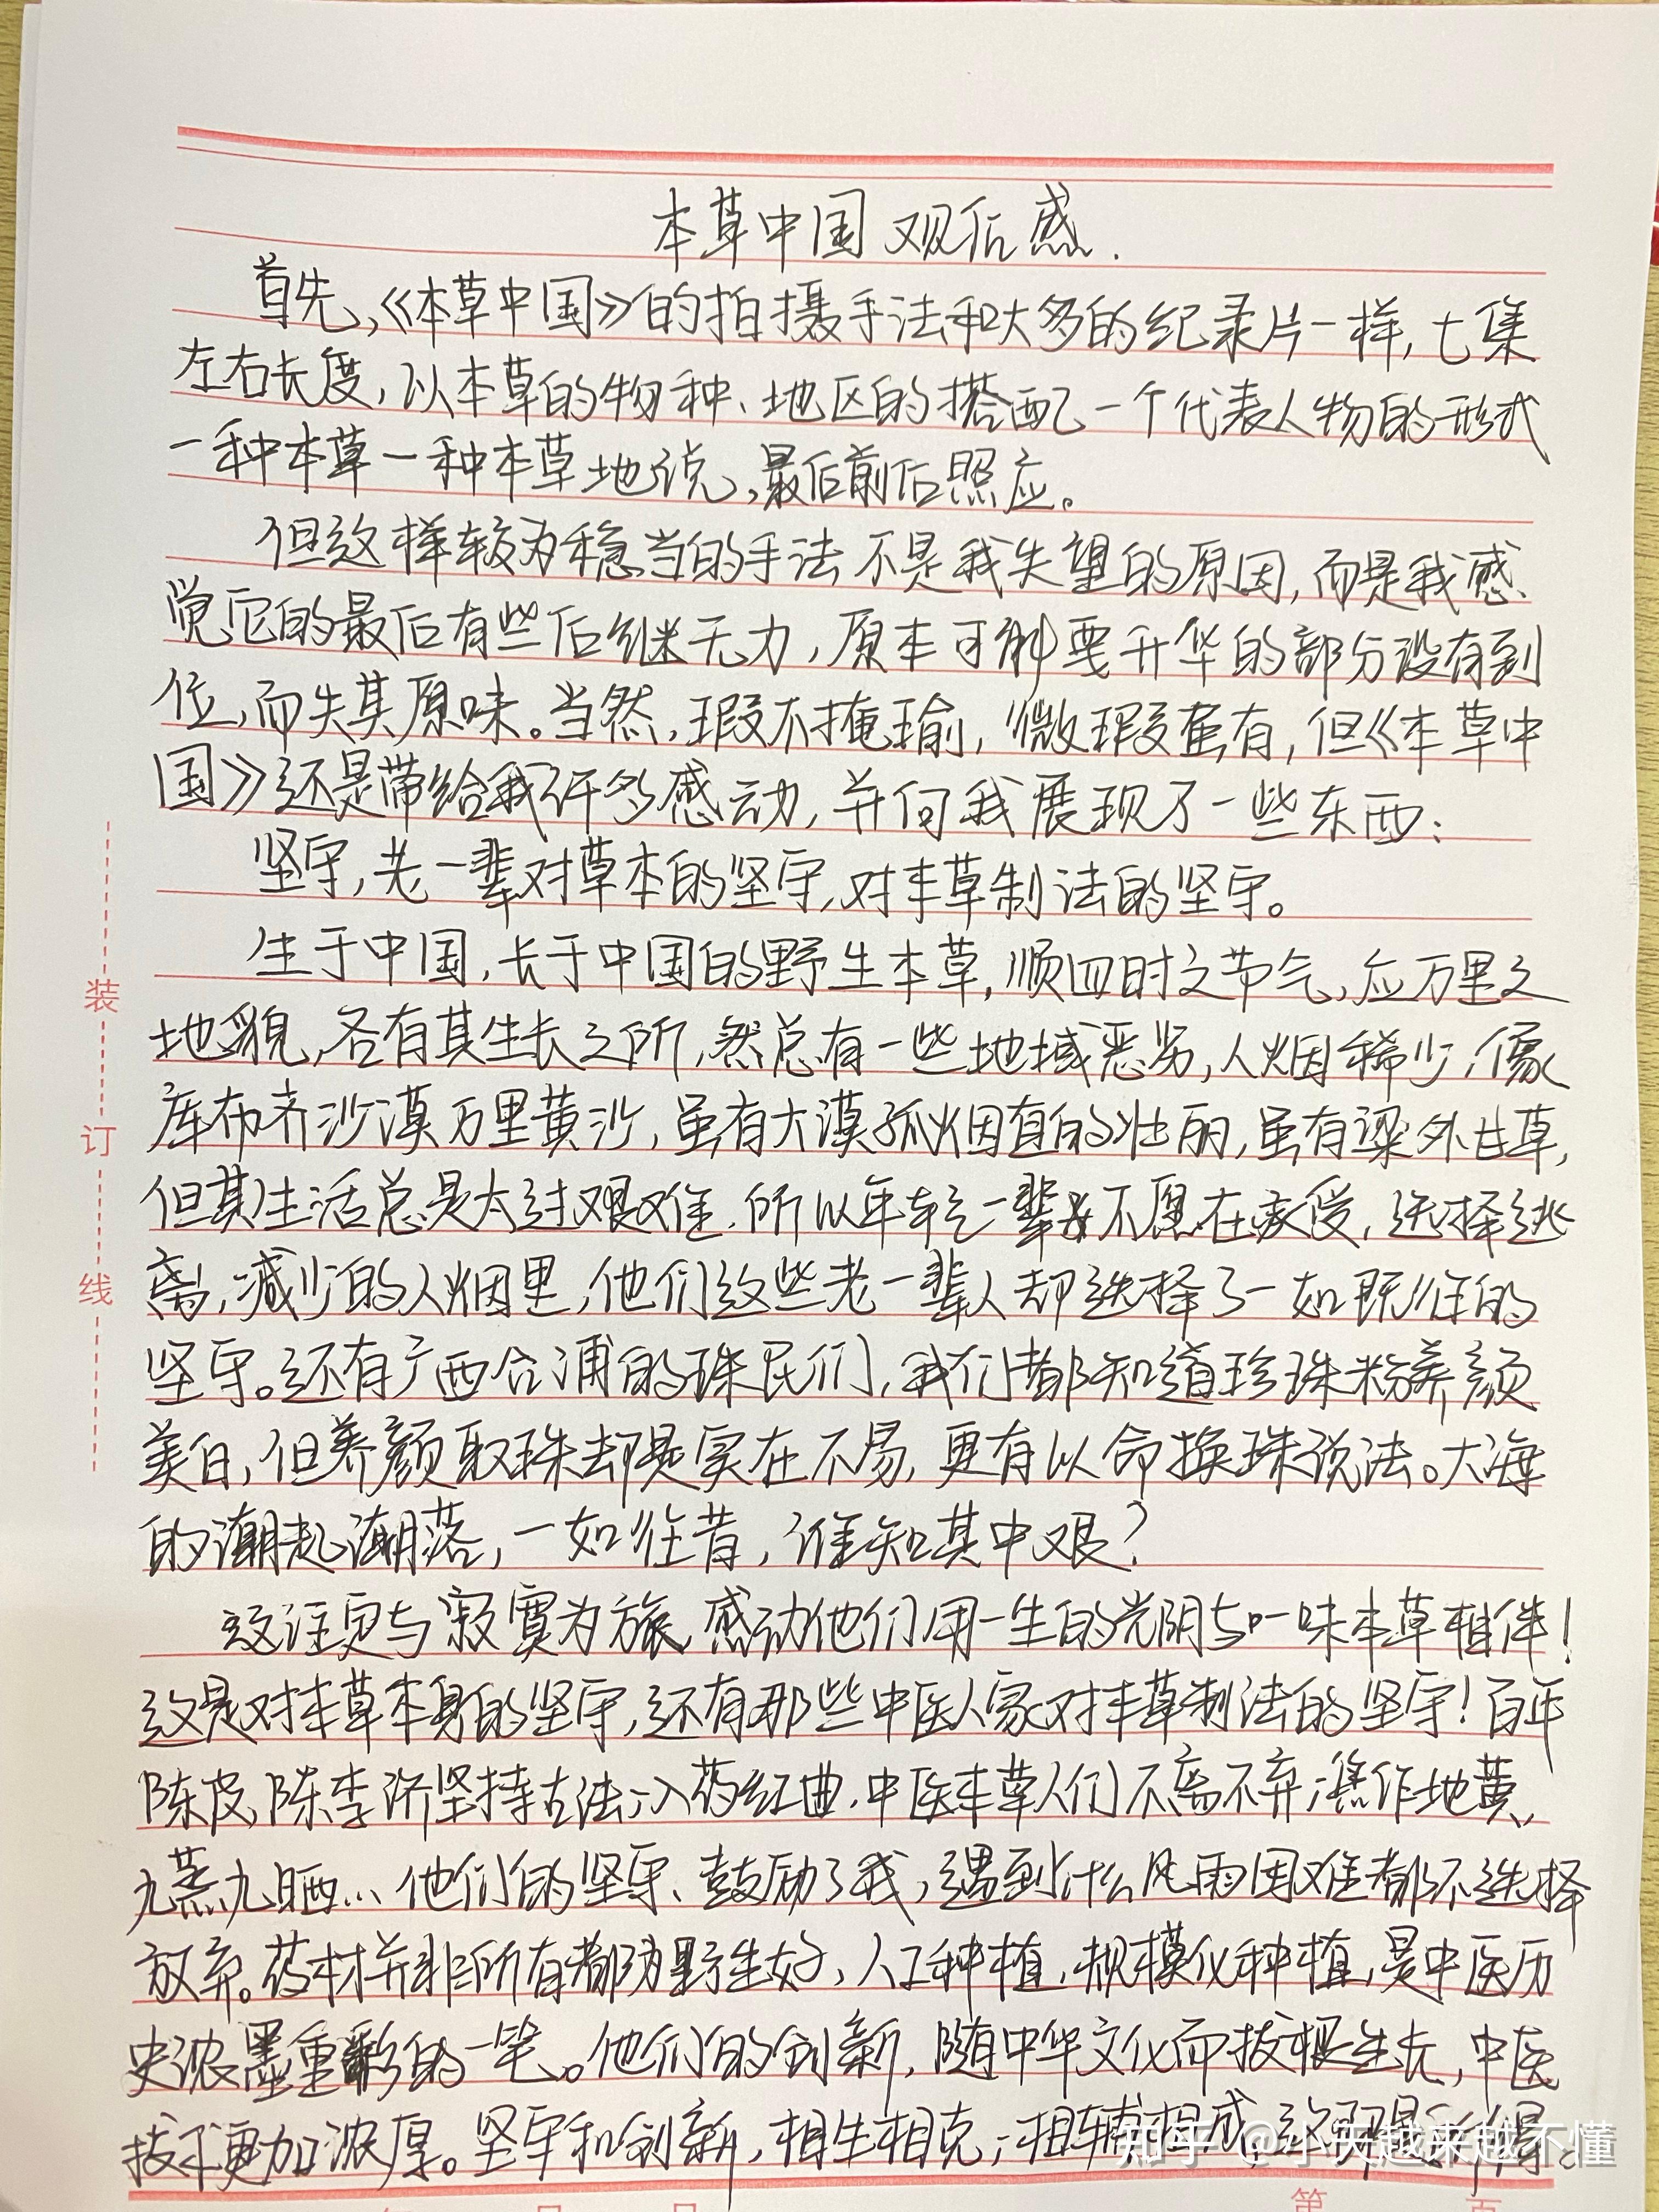 本草中国 观后感.
首先,《本草中国》的拍摄手法和大多的纪录片一样,七集
左右长度,以本草的物种、地区的搭配一个代表人物的形式
一种本草一种本草地说,最后前后照应。
但这样较为稳当的手法不是我失望的原因,而是我感
觉它的最后有些后继无力,原本可能要升华的部分没有到
位,而失其原味。当然,瑕不掩瑜,微瑕虽有,但《本草中
国》还是带给我许多感动,并向我展现了一些东西:
坚守,老一辈对草本的坚守,对本草制法的坚守。
生于中国,长于中国的野生本草,顺四时之节气,应万里之
地貌,各有其生长之所,然总有一些地域恶劣,人烟稀少,像
库布齐沙漠万里黄沙,虽有大漠孤烟直的壮丽,虽有梁外甘草,
但其生活总是太过艰难.所以年轻一辈不愿在承受,选择逃
离,减少的人烟里,他们这些老一辈人却选择了一如既往的
坚守。还有广西合浦的珠民们,我们都知道珍珠粉养颜
美白,但养颜取珠却是实在不易,更有以命换珠说法。大海
的潮起潮落,一如往昔,谁知其中艰?
这注定与寂寞为旅,感动他们用一生的光阴与一味本草相伴!
这是对本草本身的坚守,还有那些中医人家对本草制法的坚守!百年
陈皮,陈李济坚持古法;入药红曲,中医本草人们不离不弃;焦作地黄,
九蒸九晒... 他们的坚守、鼓励了我,遇到什么风雨困难都不选择
放弃。药材并非所有都为野生好,人工种植,规模化种植,是中医历
史浓墨重彩的一笔。他们的创新,随中华文化而拔根生长,中医
技术更加浓厚。坚守和创新,相生相克;相辅相成,
装
订
线
第
页
年
月
日
知乎 @小天越来越不懂